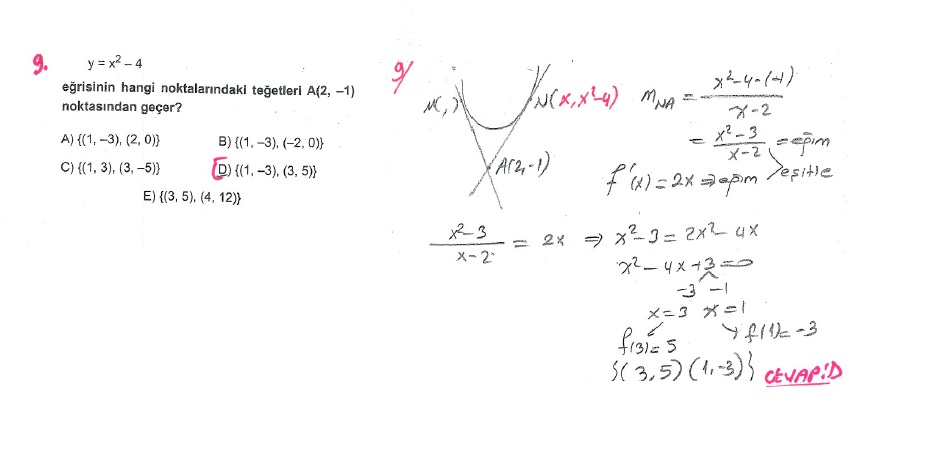 9.
y = x² – 4
eğrisinin hangi noktalarındaki teğetleri A(2, –1)
noktasından geçer?
A) {(1, –3), (2, 0)}
B) {(1, –3), (–2, 0)}
C) {(1, 3), (3, –5)}
D) {(1, –3), (3, 5)}
E) {(3, 5), (4, 12)}
9/
M( , )
N(x, x²-4)
A(2,-1)
m_NA = (x²-4-(-1))/(x-2)
= (x²-3)/(x-2) = eğim
f'(x) = 2x ⇒ eğim
eşitle
(x²-3)/(x-2) = 2x ⇒ x²-3 = 2x²-4x
x²-4x+3=0
-3 -1
x=3 x=1
f(3)=5
f(1)=-3
{(3,5) (1,-3)} CEVAP:D